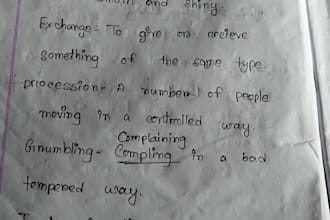 and shiny.
Exchange- To give or recieve
something of the same type.
procession- A number of people
moving in a controlled way.
Complaining
Grumbling- Compling in a bad
tempered way.